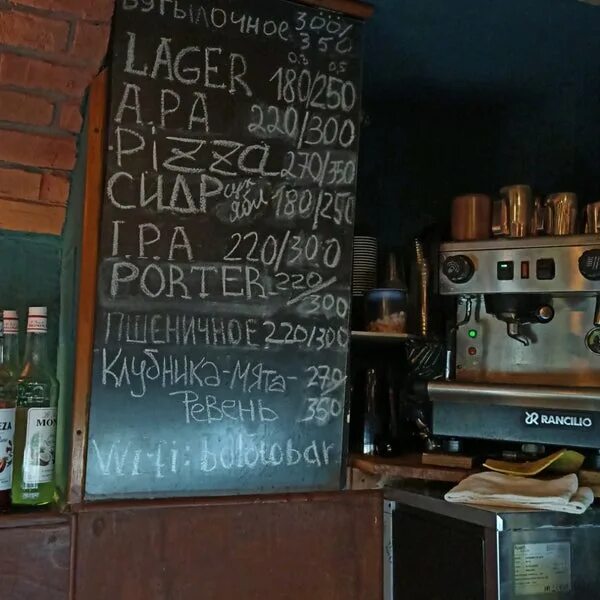 Бутылочное 300/
350
0.3 0,5
LAGER 180/250
A.P.A 220/300
Pizza 270/350
СИДР ябл 180/250
I.P.A 220/300
PORTER-220/300
ПШЕНИЧНОЕ 220/300
Клубника-мята-Ревень 270/350
Wi-fi: bolotobar
RANCILIO